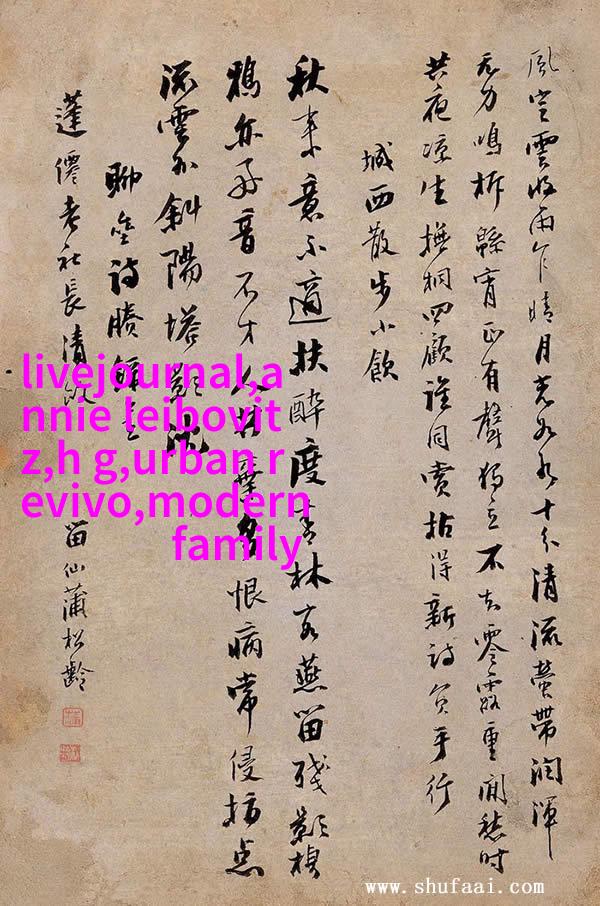 風定雲收雨乍晴月光如水十分清流螢帶潤渾
無力鳴柝縣宵正有聲獨立不知零露重閒愁時
共夜涼生撫桐四顧誰同賞拈得新詩負手行
城西散步小飲
秋來意不適扶醉度青林家燕留殘影棲
鴉亦好音不才人共棄多恨病常侵指點
流雲外斜陽塔影沈
聊 詩賸
蓬僊老社長清政
留仙蒲松齡
livejournal,a
nnie leibovit
z,h g,urban r
evivo,modern
family
www.shufaai.com